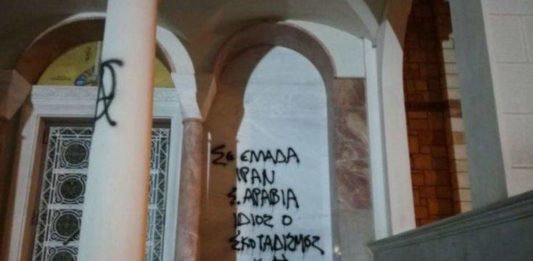 ΣΕ ΕΛΛΑΔΑ
ΙΡΑΝ
Σ. ΑΡΑΒΙΑ
ΙΔΙΟΣ Ο
ΣΚΟΤΑΔΙΣΜΟΣ